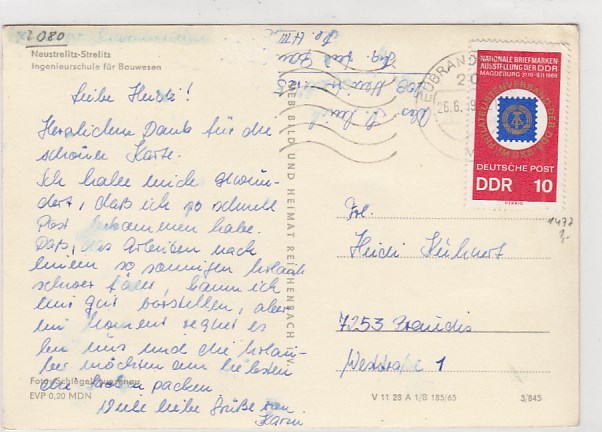 2080
Neustrelitz-Strelitz
Ingenieurschule für Bauwesen
Liebe Heidi!
Herzlichen Dank für die
schöne Karte.
Ich habe mich gewun-
dert, daß ich so schnell
Post bekommen habe.
Daß das Arbeiten nach
einem so sonnigen Urlaub
schwer fällt, kann ich
mir gut vorstellen, aber
im Moment regnet es
bei uns und die Urlau-
ber möchten am liebsten
die Koffer packen.
Viele liebe Grüße von
Karin
Foto: Schlegel
EVP 0,20 MDN
VEB BILD UND HEIMAT REICHENBACH i. V.
NEUBRAND
20
26.6.
NATIONALE BRIEFMARKEN-
AUSSTELLUNG DER DDR
MAGDEBURG 31.10.-9.11.1969
DEUTSCHE POST
DDR 10
1477
Frl.
Heidi Kühnert
7253 Brandis
Weststraße 1
V 11 28 A 1/B 185/65
3/845